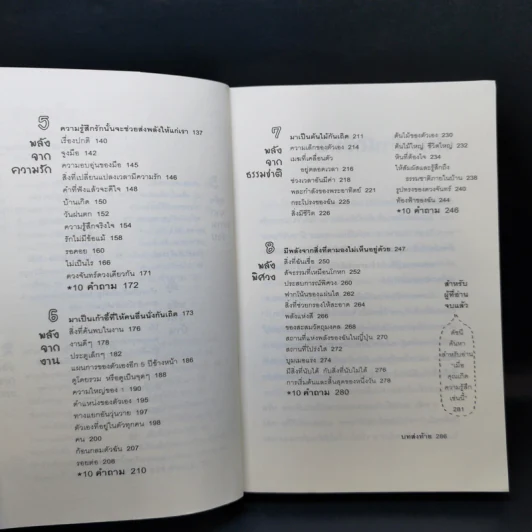 5
พลัง
จาก
ความรัก
ความรู้สึกรักนั้นจะช่วยส่งพลังให้แก่เรา 137
เรื่องปกติ 140
จูงมือ 142
ความอบอุ่นของมือ 145
สิ่งที่เปลี่ยนแปลงเวลามีความรัก 146
คำที่ฟังแล้วจะดีใจ 148
บ้านเกิด 150
วันฝนตก 152
ความรู้สึกจริงใจ 154
รักไม่มีข้อแม้ 158
รอคอย 160
ไม่เป็นไร 166
ดวงจันทร์ดวงเดียวกัน 171
*10 คำถาม 172
6
พลัง
จาก
งาน
มาเป็นเก้าอี้ที่ให้คนอื่นนั่งกันเถิด 173
สิ่งที่ค้นพบในงาน 176
งานดีๆ 178
ประตูเด็กๆ 182
แผนการของตัวเองอีก 5 ปีข้างหน้า 186
ดูโดยรวม หรือดูเป็นชุดๆ 188
ความใหญ่ของ 1 190
ตำแหน่งของตัวเอง 195
ทางแยกอันวุ่นวาย 197
ตัวเองที่อยู่ในตัวทุกคน 198
คน 200
ก้อนกลมตัวฉัน 206
รอยต่อ 208
*10 คำถาม 210
7
พลัง
จาก
ธรรมชาติ
มาเป็นต้นไม้กันเถิด 211
ความเด็กของตัวเอง 214
เมฆที่เคลื่อนตัว
อยู่ตลอดเวลา 216
ช่วงเวลาอันมีค่า 218
พละกำลังของพระอาทิตย์ 221
กระโปรงของฉัน 224
สิ่งมีชีวิต 226
ต้นไม้ของตัวเอง 230
ต้นไม้ใหญ่ ชีวิตใหญ่ 232
หินที่ต้องใจ 234
ให้สัมผัสและรู้สึกถึง
ธรรมชาติภายในบ้าน 238
รูปทรงของดวงจันทร์ 240
ท้องฟ้าของฉัน 242
*10 คำถาม 246
8
พลัง
พิศวง
มีพลังจากสิ่งที่ตามองไม่เห็นอยู่ด้วย 247
สิ่งที่ฉันเชื่อ 250
สัจธรรมที่เหมือนโกหก 251
ประสบการณ์พิศวง 260
ฟากโน้นของแผ่นใด 262
สิ่งที่ช่วยกรองให้สะอาด 264
พลังแห่งสี 266
ของสะสมวัตถุมงคล 268
สถานที่แห่งพลังของฉันในญี่ปุ่น 270
สถานที่โปร่งใส 272
บูมเมอแรง 274
มีสิ่งที่นับได้ กับสิ่งที่นับไม่ได้ 276
การเริ่มต้นและสิ้นสุดของหนึ่งวัน 278
*10 คำถาม 280
สำหรับ
ผู้ที่อ่าน
จบแล้ว
ดัชนี
ค้นหา
สำหรับอ่าน
เมื่อ
คุณเกิด
ความรู้สึก
เช่นนี้
281
บทส่งท้าย 286